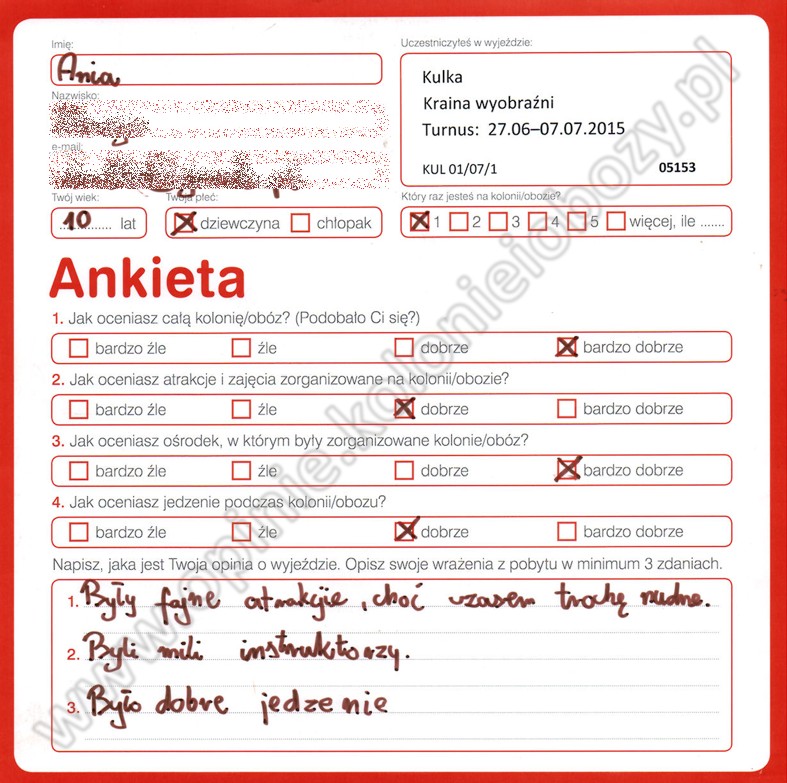 Imię:
Uczestniczyłeś w wyjeździe:
Ania
Kulka
Kraina wyobraźni
Turnus: 27.06–07.07.2015
KUL 01/07/1 05153
Nazwisko:
e-mail:
Twój wiek:
Twoja płeć:
Który raz jesteś na kolonii/obozie?
10 lat
dziewczyna chłopak
1 2 3 4 5 więcej, ile .......
Ankieta
1. Jak oceniasz całą kolonię/obóz? (Podobało Ci się?)
bardzo źle źle dobrze bardzo dobrze
2. Jak oceniasz atrakcje i zajęcia zorganizowane na kolonii/obozie?
bardzo źle źle dobrze bardzo dobrze
3. Jak oceniasz ośrodek, w którym były zorganizowane kolonie/obóz?
bardzo źle źle dobrze bardzo dobrze
4. Jak oceniasz jedzenie podczas kolonii/obozu?
bardzo źle źle dobrze bardzo dobrze
Napisz, jaka jest Twoja opinia o wyjeździe. Opisz swoje wrażenia z pobytu w minimum 3 zdaniach.
1. Były fajne atrakcjie, choć czasem trochę nudne.
2. Byli mili instruktorzy.
3. Było dobre jedzenie
www.opinie.kolonieiobozy.pl